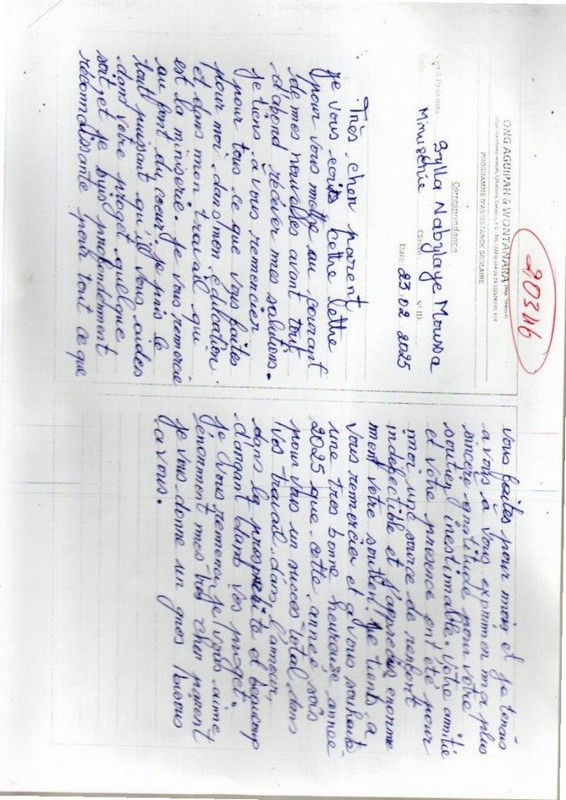 203116
ONG AGUIPAH & WONTANARA
PROGRAMME D'ASSISTANCE SCOLAIRE
Correspondance
Sylla Nabylaye Moussa
Classe N° ID
Minuiserie
Date 23.02.2025
Très cher parent
je vous ecris cette lettre
pour vous mettre au courant
de mes nouvelles avant tout
d'abord recever mes salutions.
je tiens à vous remercier
pour tous ce que vous faites
pour moi dans mon éducation
et dans mon travail qui
est la minuserie. Je vous remercie
au font du cœur je pris le
tout puissant qu'il vous aides
dans votre proget quelque
soit et je suis profondement
rebondissante pour tout ce que
vous faites pour moi et je tenais
a vous à vous exprimer ma plus
sincère gratitude pour votre
soutien inestimable. Votre amitié
et votre presence ont été pour
moi une source de renfort
indefectible et j'apprecie enorme
ment votre soutien. Je tiens a
vous remercier et je vous souhaite
une tres bonne heureuse annee
2025 que cette annee sois
pour vous un succes total dans
vos travail dans l'amour,
dans la prosperite et beaucoup
d'argent dans vos proget.
Je vous remercie, je vous aime
enormement mes cher parent
je vous donne un gros bisous
a vous.